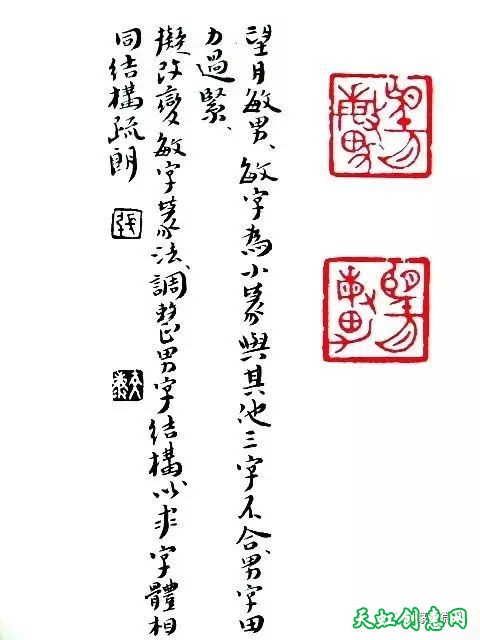 望月敏男、敏字為小篆與其他三字不合男字田
力過緊、
擬改變敏字篆法調整男字結構以求字體相
同結構疏朗
張
天虹创意网